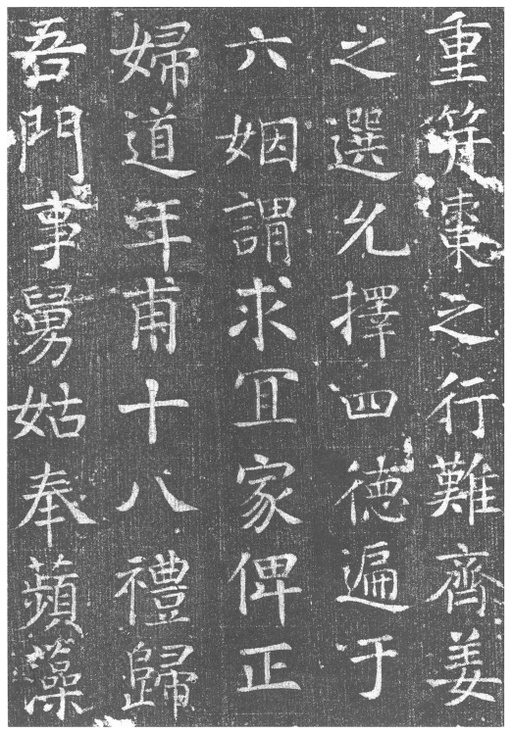 重筓棗之行難齊姜
之選允擇四徳遍于
六姻謂求冝家俾正
婦道年甫十八禮歸
吾門事舅姑奉蘋藻